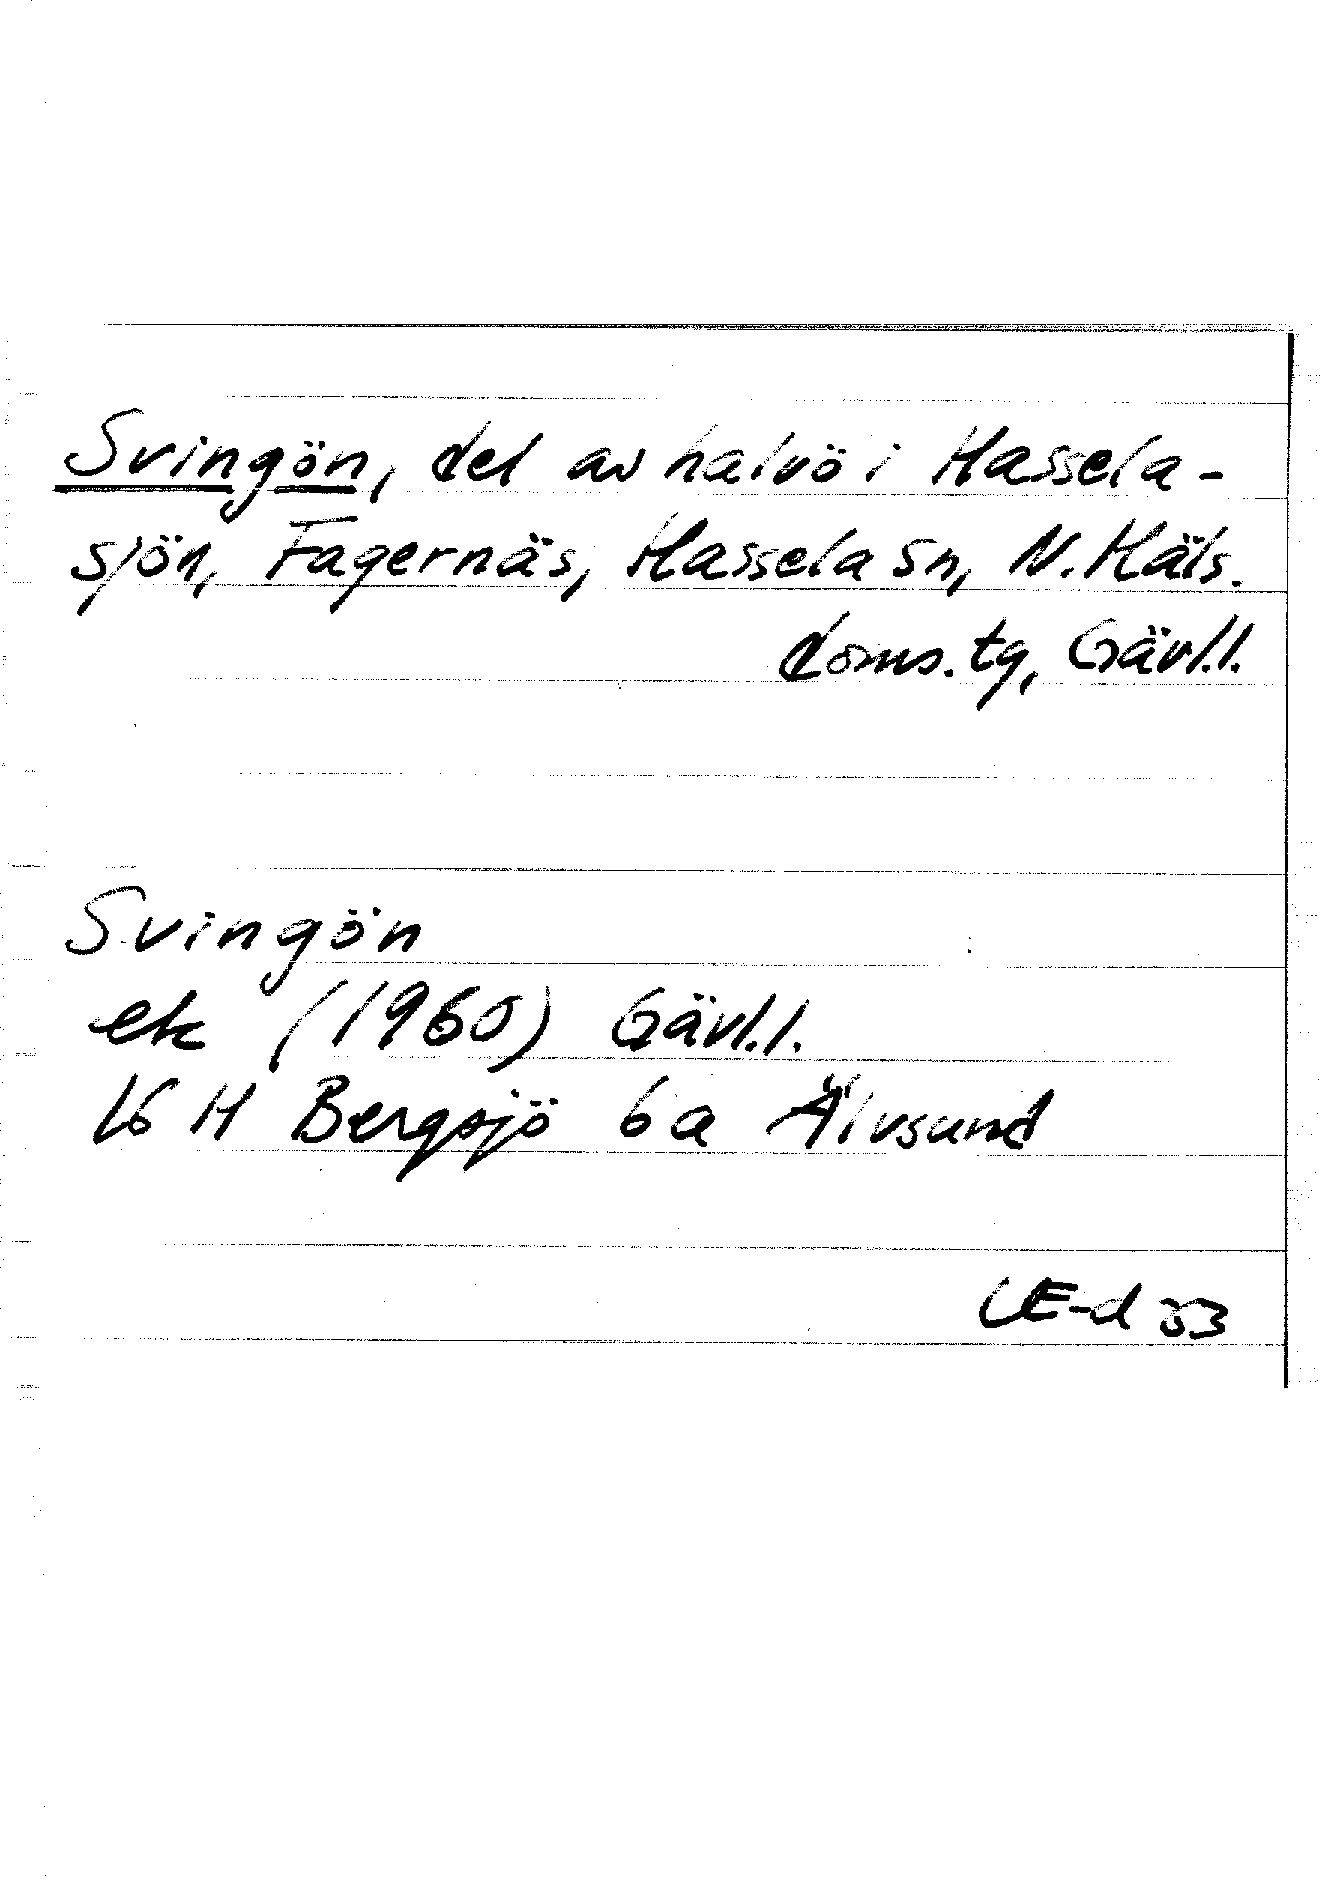 Svingön, del av halvö i Hassela-
sjön, Fagernäs, Hassela sn, N. Häls.
doms. tg, Gävl.l.
Svingön
ek (1960) Gävl.l.
16 H Bergsjö 6a Älvsund
UE-d 83